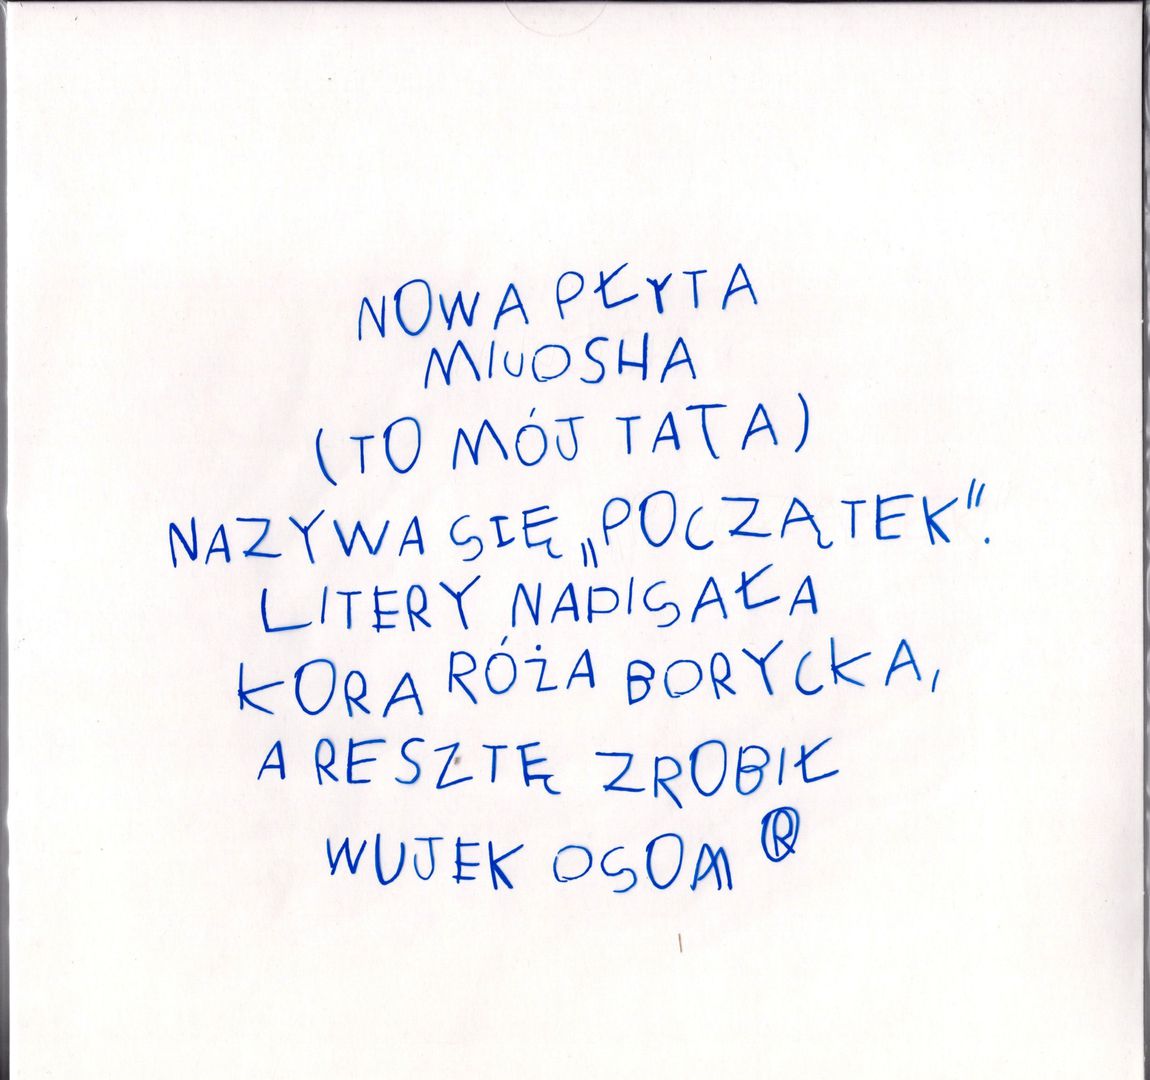 NOWA PŁYTA
MIUOSHA
(TO MÓJ TATA)
NAZYWA SIĘ „POCZĄTEK".
LITERY NAPISAŁA
KORA RÓŻA BORYCKA,
A RESZTĘ ZROBIŁ
WUJEK OSOM ®